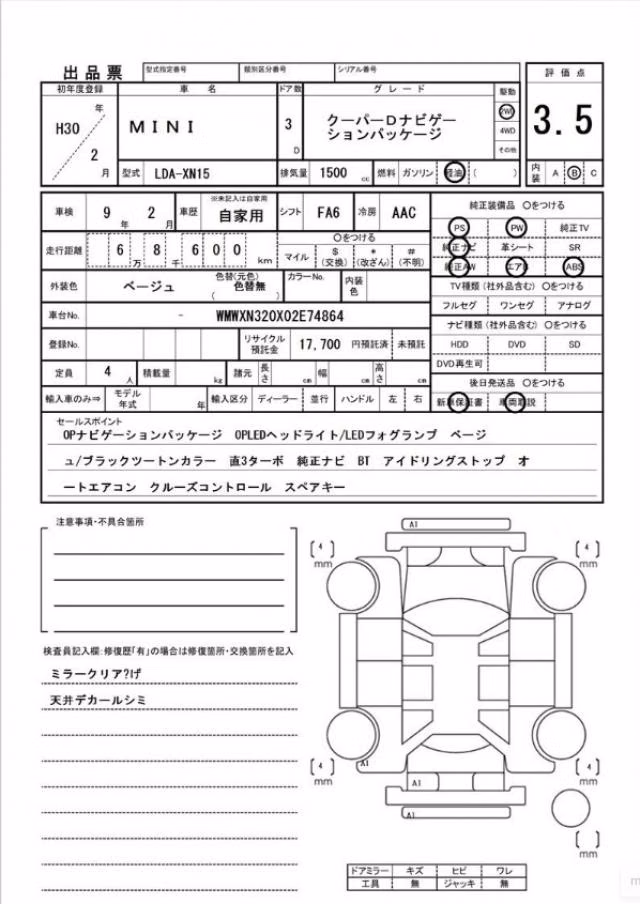 出品票 型式指定番号 類別区分番号 シリアル番号 評価点
初年度登録 車名 ドア数 グレード 駆動
H30年2月 MINI 3D クーパーDナビゲーションパッケージ 2WD 4WD その他 3.5
型式 LDA-XN15 排気量 1500 cc 燃料 ガソリン 軽油 ( ) 内装 A B C
車検 9年 2月 車歴 ※未記入は自家用 自家用 シフト FA6 冷房 AAC 純正装備品 〇をつける
PS PW 純正TV
走行距離 6万8千600km 〇をつける マイル $(交換) *(改ざん) #(不明) 純正ナビ 革シート SR
純正AW エアB ABS
外装色 ベージュ 色替(元色) 色替無 ( ) カラーNo. 内装色 TV種類(社外品含む) 〇をつける
フルセグ ワンセグ アナログ
車台No. - WMWXN320X02E74864 ナビ種類(社外品含む) 〇をつける
登録No. リサイクル預託金 17,700 円預託済 未預託 HDD DVD SD
DVD再生可
定員 4人 積載量 kg 諸元 長さ cm 幅 cm 高さ cm 後日発送品 〇をつける
輸入車のみ⇒ モデル年式 年 輸入区分 ディーラー 並行 ハンドル 左 右 新車保証書 車両取説
セールスポイント
OPナビゲーションパッケージ OPLEDヘッドライト/LEDフォグランプ ベージ
ュ/ブラックツートンカラー 直3ターボ 純正ナビ BT アイドリングストップ オ
ートエアコン クルーズコントロール スペアキー
注意事項・不具合箇所
A1
[4]mm [4]mm
検査員記入欄:修復歴「有」の場合は修復箇所・交換箇所を記入
ミラークリア?げ
天井デカールシミ
A1
[4]mm A1 [4]mm
A1
[ ]mm
ドアミラー キズ ヒビ ワレ
工具 無 ジャッキ 無